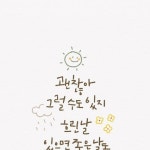 괜찮아
그럴 수도 있지
흐린 날
있으면 좋은 날도